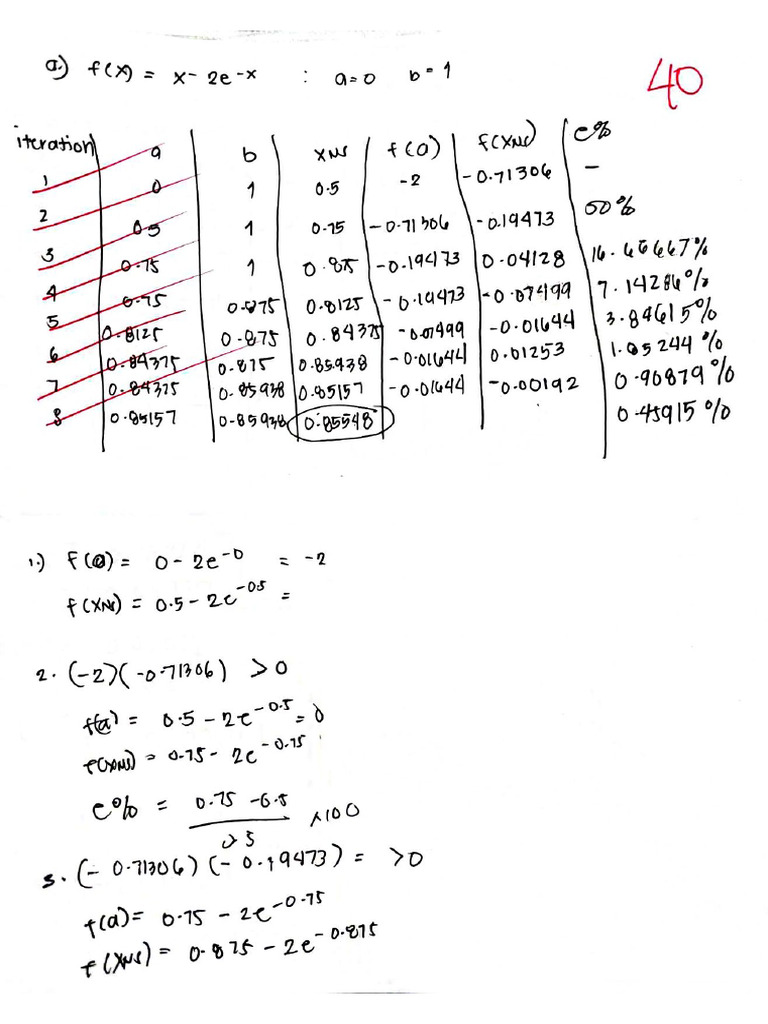 a.) f(x) = x - 2e^-x : a=0 b=1
40
iteration | a | b | xNS | f(a) | f(xNS) | e%
1 | 0 | 1 | 0.5 | -2 | -0.71306 | -
2 | 0.5 | 1 | 0.75 | -0.71306 | -0.19473 | 50%
3 | 0.75 | 1 | 0.875 | -0.19473 | 0.04128 | 16.66667%
4 | 0.75 | 0.875 | 0.8125 | -0.19473 | -0.07499 | 7.14286%
5 | 0.8125 | 0.875 | 0.84375 | -0.07499 | -0.01644 | 3.84615%
6 | 0.84375 | 0.875 | 0.85938 | -0.01644 | 0.01253 | 1.85244%
7 | 0.84375 | 0.85938 | 0.85157 | -0.01644 | -0.00192 | 0.90879%
8 | 0.85157 | 0.85938 | 0.85548 | 0.45915%
1.) f(a) = 0 - 2e^-0 = -2
f(xNS) = 0.5 - 2e^-0.5 =
2. (-2)(-0.71306) > 0
f(a) = 0.5 - 2e^-0.5 = 0
f(xNS) = 0.75 - 2e^-0.75
e% = 0.75 - 0.5 x100
3. (-0.71306)(-0.19473) = > 0
f(a) = 0.75 - 2e^-0.75
f(xNS) = 0.875 - 2e^-0.875